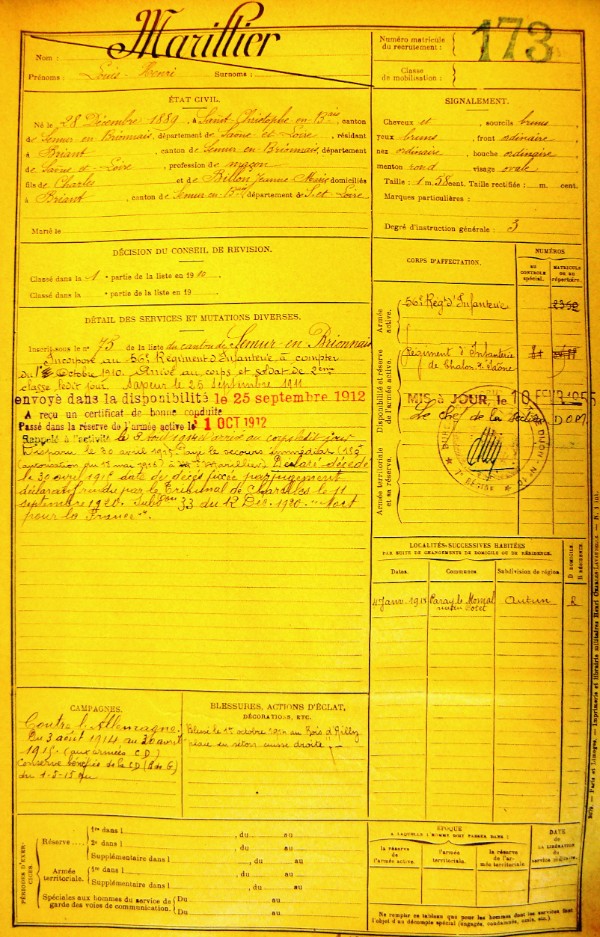 Nom : Marillier
Prénoms : Louis Henri Surnoms :
Numéro matricule du recrutement : 173
Classe de mobilisation :
ÉTAT CIVIL.
Né le 28 Décembre 1889, à Saint Christophe en Bris, canton
de Semur en Brionnais, département de Saône et Loire, résidant
à Briant, canton de Semur en Brionnais, département
de Saône et Loire, profession de maçon
fils de Charles et de Billon Jeanne Marie domiciliés
à Briant, canton de Semur en Bris, département de S. et Loire
Marié le
SIGNALEMENT.
Cheveux et sourcils bruns
yeux bruns, front ordinaire
nez ordinaire, bouche ordinaire
menton rond visage ovale
Taille : 1 m. 58 cent. Taille rectifiée : m. cent.
Marques particulières :
Degré d'instruction générale : 3
DÉCISION DU CONSEIL DE REVISION.
Classé dans la 1e partie de la liste en 1910
Classé dans la e partie de la liste en 19
DÉTAIL DES SERVICES ET MUTATIONS DIVERSES.
Inscrit sous le no 75 de la liste du canton de Semur-en-Brionnais
Incorporé au 56e Régiment d'Infanterie à compter
du Octobre 1910. Arrivé au corps et soldat de 2ème
classe ledit jour. Sapeur le 26 septembre 1911
envoyé dans la disponibilité le 25 septembre 1912
A reçu un certificat de bonne conduite
Passé dans la réserve de l'armée active le 1 OCT 1912
Rappelé à l'activité le 3 Août 1914 arrivé au corps ledit jour
Disparu le 30 avril 1915. Payé le secours immédiat (150f
Déclaré décédé
le 30 avril 1915 date de décès fixée par jugement
déclaratif rendu par le Tribunal de Charolles le 11
septembre 1920. 33 du 12 Déc. 1920. "Mort
pour la France".
CORPS D'AFFECTATION.
NUMÉROS
AU CONTRÔLE spécial.
MATRICULE OU AU répertoire.
Armée active.
56e Régt d'Infanterie
Disponibilité et réserve de l'armée active.
Régiment d'Infanterie
de Chalon s/ Saône
MIS à JOUR, le 10
Le Chef de la section
Armée territoriale et sa réserve.
LOCALITÉS SUCCESSIVES HABITÉES
PAR SUITE DE CHANGEMENTS DE DOMICILE OU DE RÉSIDENCE.
Dates. Communes. Subdivision de région. D DOMICILE R RÉSIDENCE
Janv. 191 Paray le Monial Autun R
CAMPAGNES.
Contre l'Allemagne.
Du 3 août 1914 au 30 avril
1915 (aux armées C.D)
BLESSURES, ACTIONS D'ÉCLAT,
DÉCORATIONS, ETC.
Blessé le octobre 1914 au Bois d'Ailly
cuisse droite.
PÉRIODES D'EXERCICES.
Réserve
1re dans l , du au
2e dans l , du au
Supplémentaire dans l , du au
Armée territoriale.
1re dans l , du au
Supplémentaire dans l , du au
Spéciales aux hommes du service de garde des voies de communication.
Du au
Du au
ÉPOQUE
A LAQUELLE L'HOMME DOIT PASSER DANS :
la réserve de l'armée active.
l'armée territoriale.
la réserve de l'armée territoriale.
DATE de la LIBÉRATION du service militaire.
Ne remplir ce tableau que pour les hommes dont les services font
l'objet d'un décompte spécial (engagés, condamnés, omis, etc.)
Paris et Limoges. — Imprimerie et librairie militaires Henri CHARLES-LAVAUZELLE.